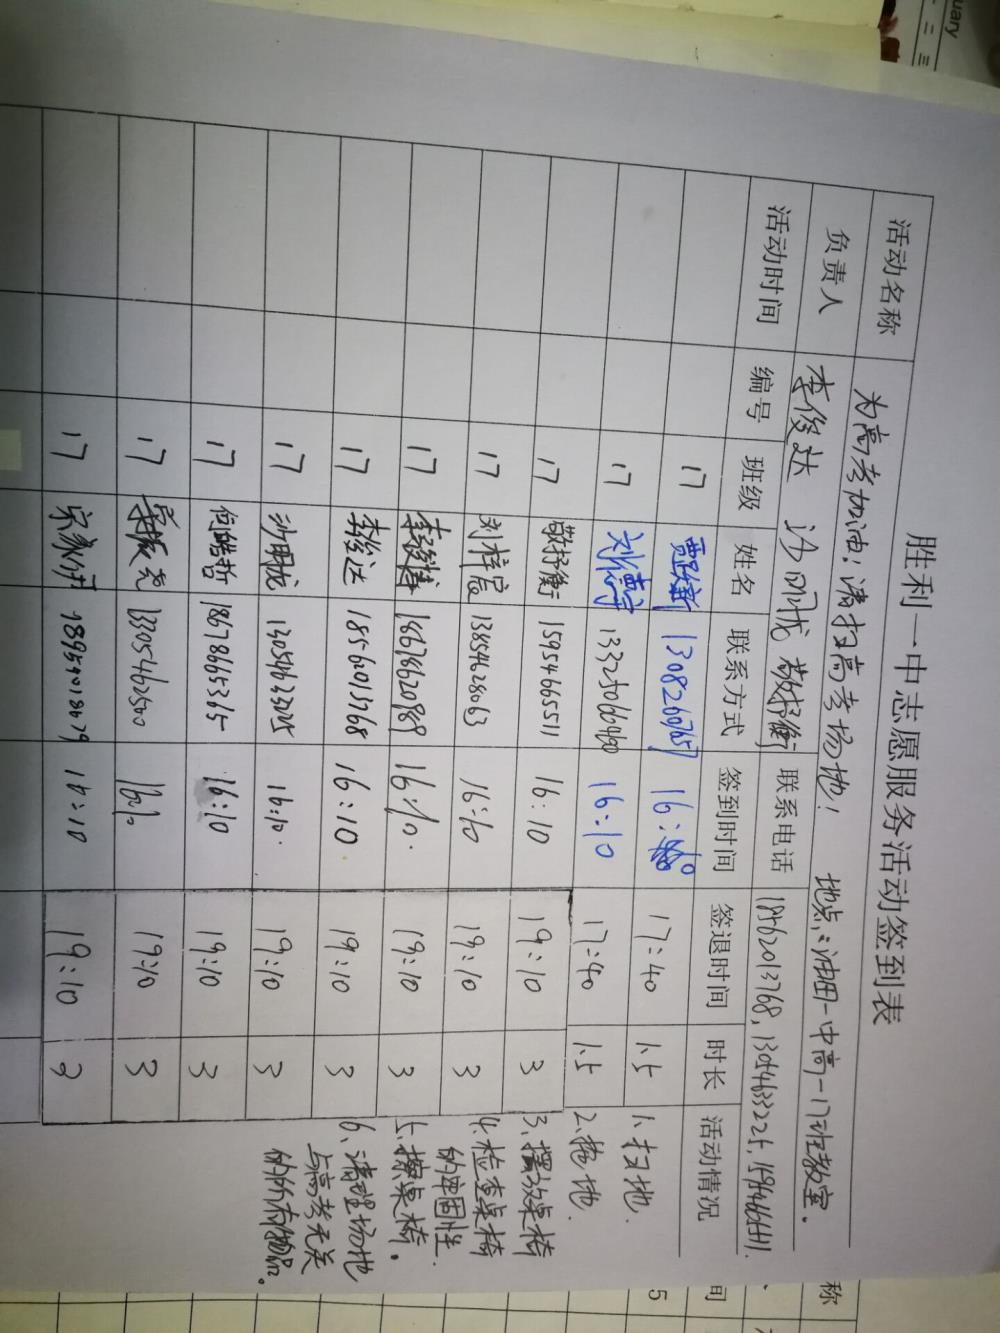 胜利一中志愿服务活动签到表
活动名称 为高考加油！清扫高考场地！ 地点：油田一中高一17班教室。
负责人 李俊达 沙明龙 敬抒衡 联系电话
活动时间 编号 班级 姓名 联系方式 签到时间 签退时间 时长 活动情况
17 17:40 1.5 1、扫地.
17 16:10 17:40 1.5 2、拖地.
17 敬抒衡 15954665511 16:10 19:10 3 3、摆放桌椅
17 13854628063 16:10 19:10 3 4、检查桌椅
的牢固性.
17 18678620989 16:10. 19:10 3 5、擦桌椅.
17 李俊达 18562013768 16:10 19:10 3 6、清理场地
与高考无关
的所有物品。
17 沙明龙 16:10. 19:10 3
17 何皓哲 18678665365 16:10 19:10 3
17 13305462560 16:10 19:10 3
17 16:10 19:10 3
称
间
5
uary
一 二 三